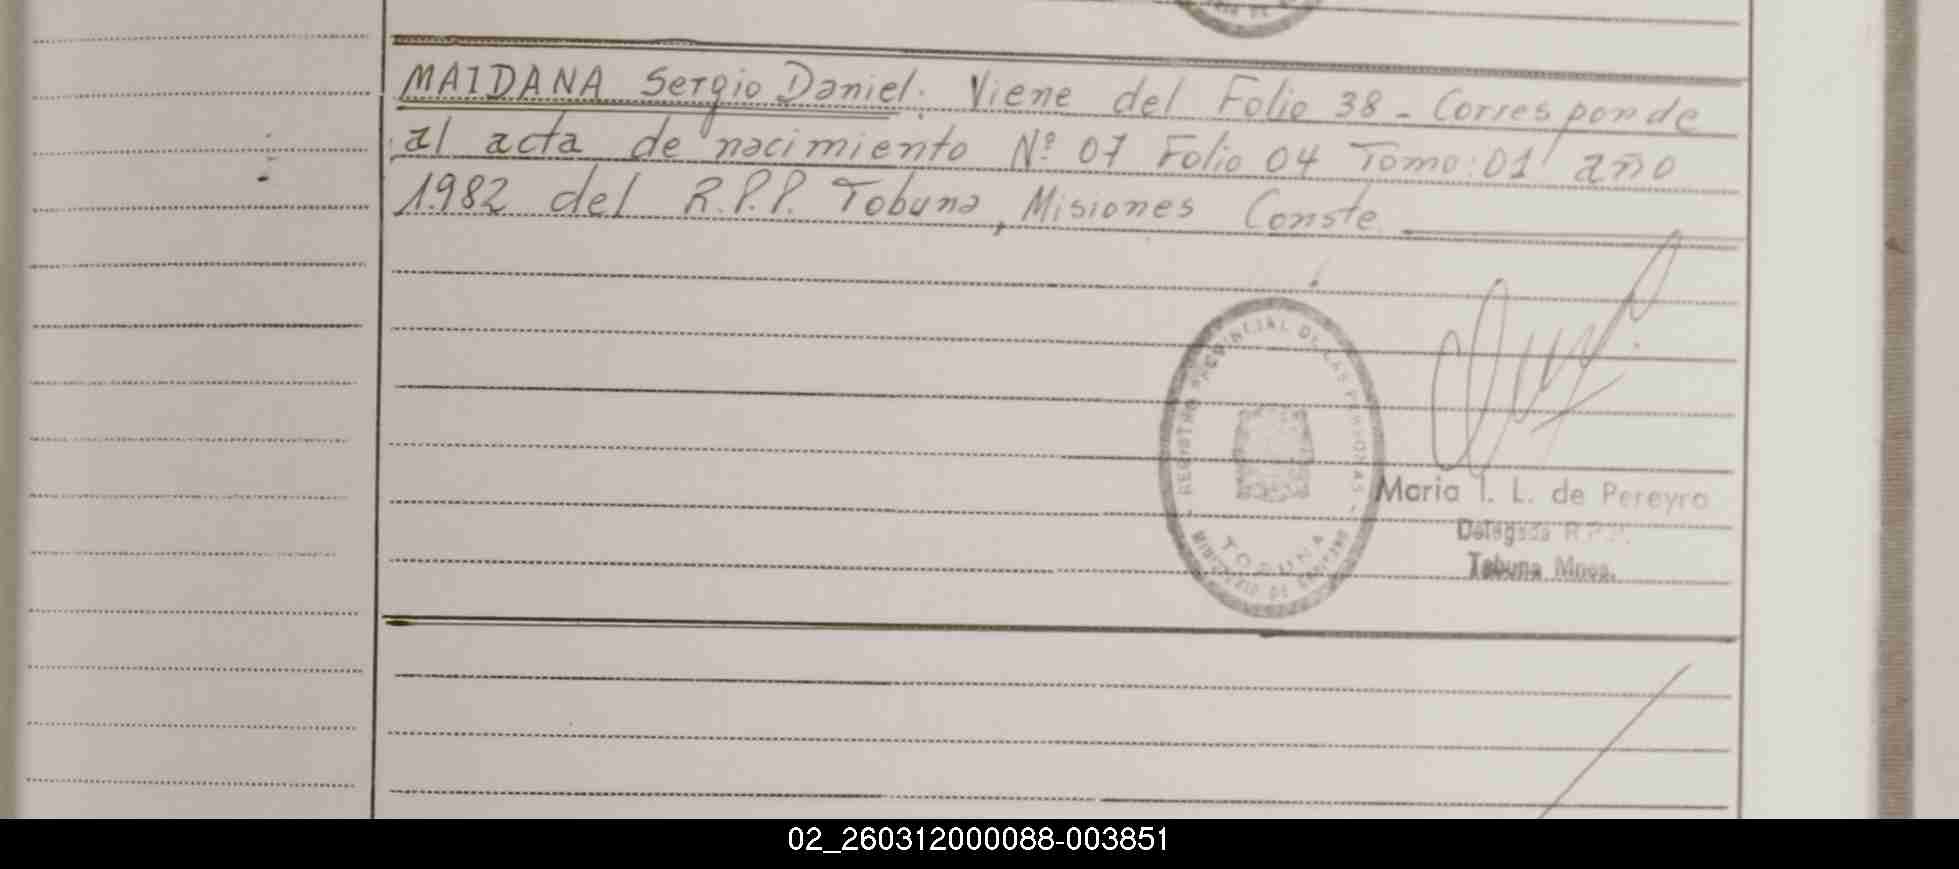 MAIDANA Sergio Daniel. Viene del Folio 38 - Corresponde
al acta de nacimiento Nº 07 Folio 04 Tomo: 01 año
1.982 del R.P.P. Tobuna, Misiones Conste
REGISTRO PROVINCIAL DE LAS PERSONAS
TOBUNA
MINISTERIO DE GOBIERNO
Maria I. L. de Pereyra
Delegada R.P.P.
Tobuna Mnes.
02_260312000088-003851